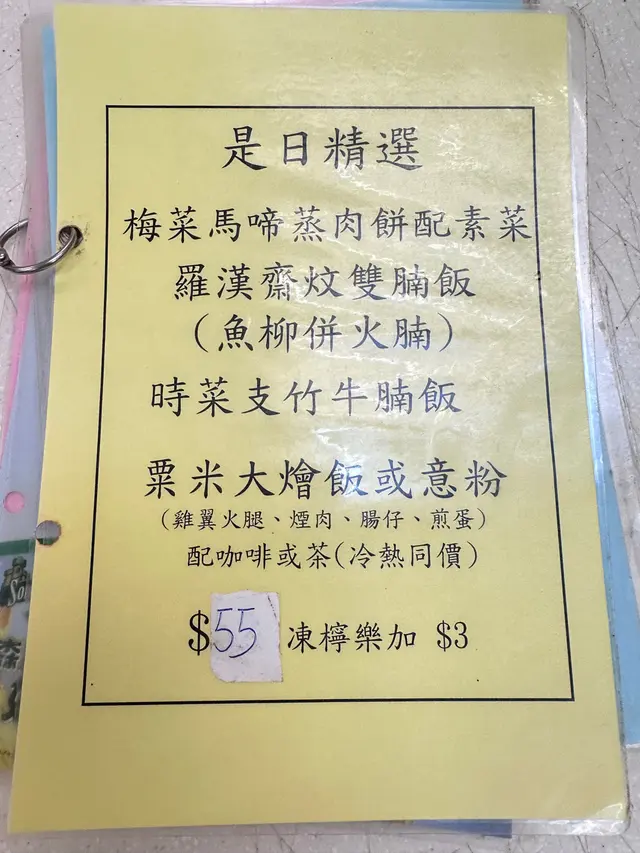 是日精選
梅菜馬啼蒸肉餅配素菜
羅漢齋炆雙腩飯
(魚柳併火腩)
時菜支竹牛腩飯
粟米大燴飯或意粉
(雞翼火腿、煙肉、腸仔、煎蛋)
配咖啡或茶(冷熱同價)
$55 凍檸樂加 $3